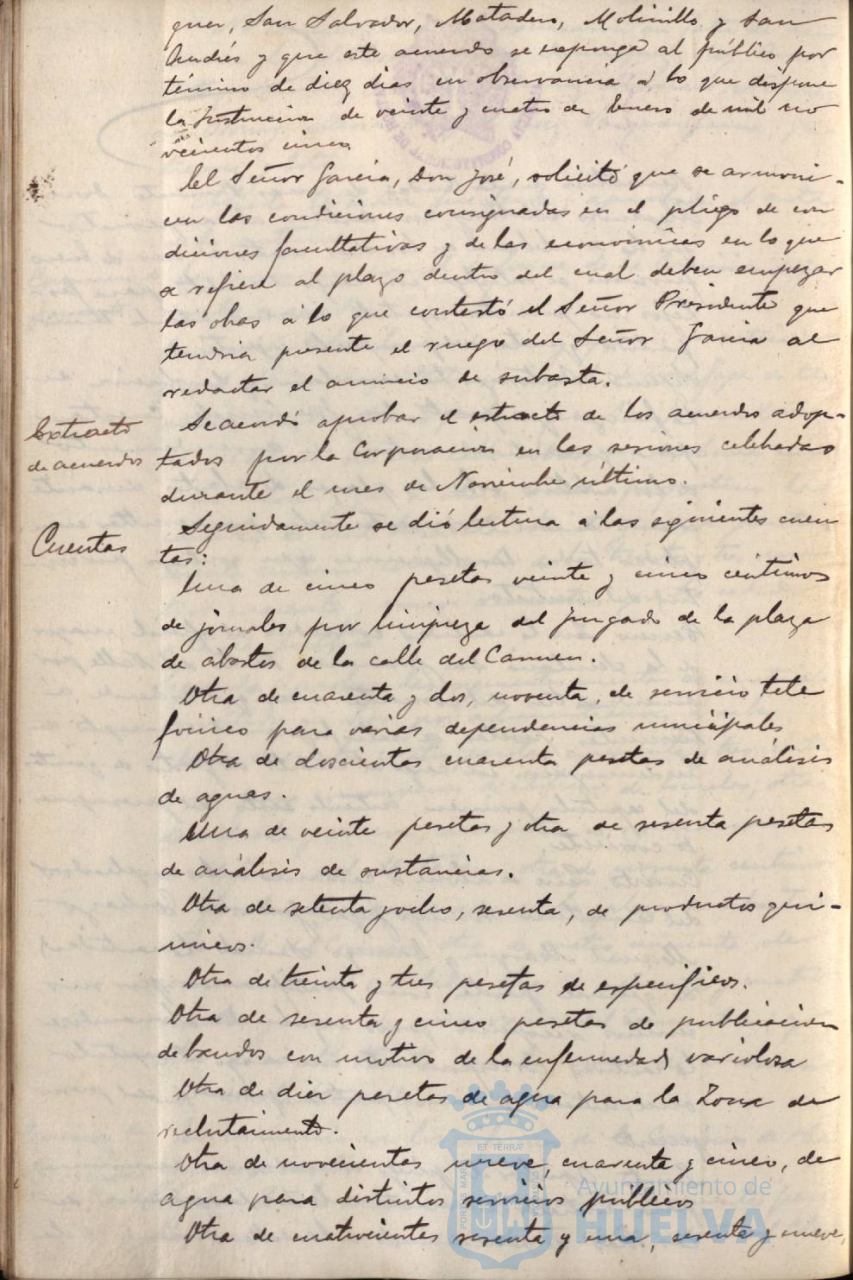 guer, San Salvador, Matadero, Molinillo y San
Andrés y que este acuerdo se exponga al público por
término de diez dias en observancia á lo que dispone
la Instruccion de veinte y cuatro de Enero de mil no
vecientos cinco
El Señor Garcia, Don José, solicitó que se armoni-
cen las condiciones consignadas en el pliego de con
diciones facultativas y de las económicas en lo que
se refiere al plazo dentro del cual deben empezar
las obras á lo que contestó el Señor Presidente que
tendria presente el ruego del Señor Garcia al
redactar el anuncio de subasta.
Extracto
de acuerdos
Se acordó aprobar el extracto de los acuerdos adop-
tados por la Corporacion en las sesiones celebradas
durante el mes de Noviembre último.
Cuentas
Seguidamente se dió lectura á las siguientes cuen
tas:
Una de cinco pesetas veinte y cinco centimos
de jornales por limpieza del juzgado de la plaza
de abastos de la calle del Carmen.
Otra de cuarenta y dos, noventa, de servicio tele
fónico para varias dependencias municipales
Otra de doscientas cuarenta pesetas de análisis
de aguas.
Una de veinte pesetas y otra de sesenta pesetas
de análisis de sustancias.
Otra de setenta y ocho, sesenta, de productos quí-
micos.
Otra de treinta y tres pesetas de especificos.
Otra de sesenta y cinco pesetas de publicacion
de bandos con motivo de la enfermedad variolosa
Otra de diez pesetas de agua para la Zona de
reclutamiento.
Otra de novecientas nueve, cuarenta y cinco, de
agua para distintos servicios públicos
Otra de cuatrocientas sesenta y una, sesenta y nueve,
ET TERRAE
Ayuntamiento de
HUELVA